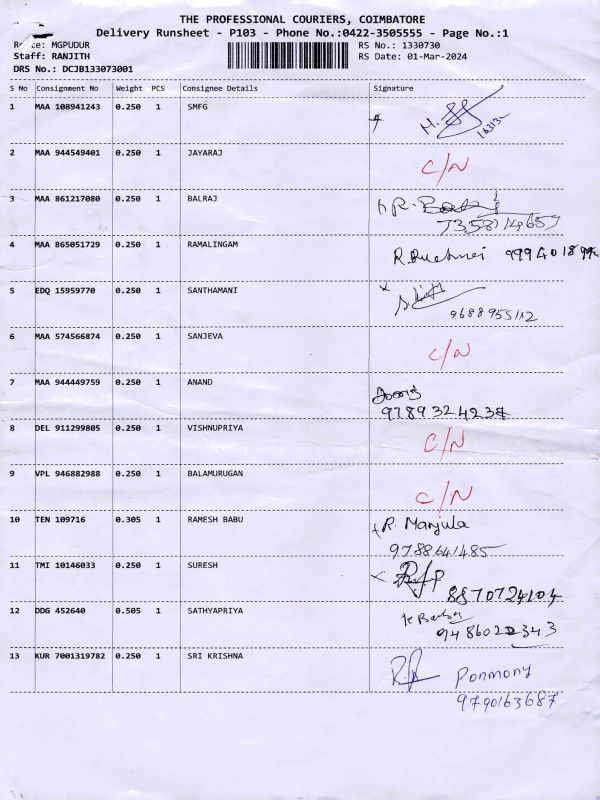 THE PROFESSIONAL COURIERS, COIMBATORE
Delivery Runsheet - P103 - Phone No.:0422-3505555 - Page No.:1
Route: MGPUDUR RS No.: 1330730
Staff: RANJITH RS Date: 01-Mar-2024
DRS No.: DCJB133073001
S No Consignment No Weight PCS Consignee Details Signature
1 MAA 108941243 0.250 1 SMFG
2 MAA 944549401 0.250 1 JAYARAJ C/N
3 MAA 861217080 0.250 1 BALRAJ
7358714657
4 MAA 865051729 0.250 1 RAMALINGAM
5 EDQ 15959770 0.250 1 SANTHAMANI
9688955112
6 MAA 574566874 0.250 1 SANJEVA C/N
7 MAA 944449759 0.250 1 ANAND
9789324237
8 DEL 911299805 0.250 1 VISHNUPRIYA C/N
9 VPL 946882988 0.250 1 BALAMURUGAN C/N
10 TEN 109716 0.305 1 RAMESH BABU R. Manjula
9788641485
11 TMI 10146033 0.250 1 SURESH
8870724104
12 DDG 452640 0.505 1 SATHYAPRIYA
9486022343
13 KUR 7001319782 0.250 1 SRI KRISHNA Ponmony
9790163687